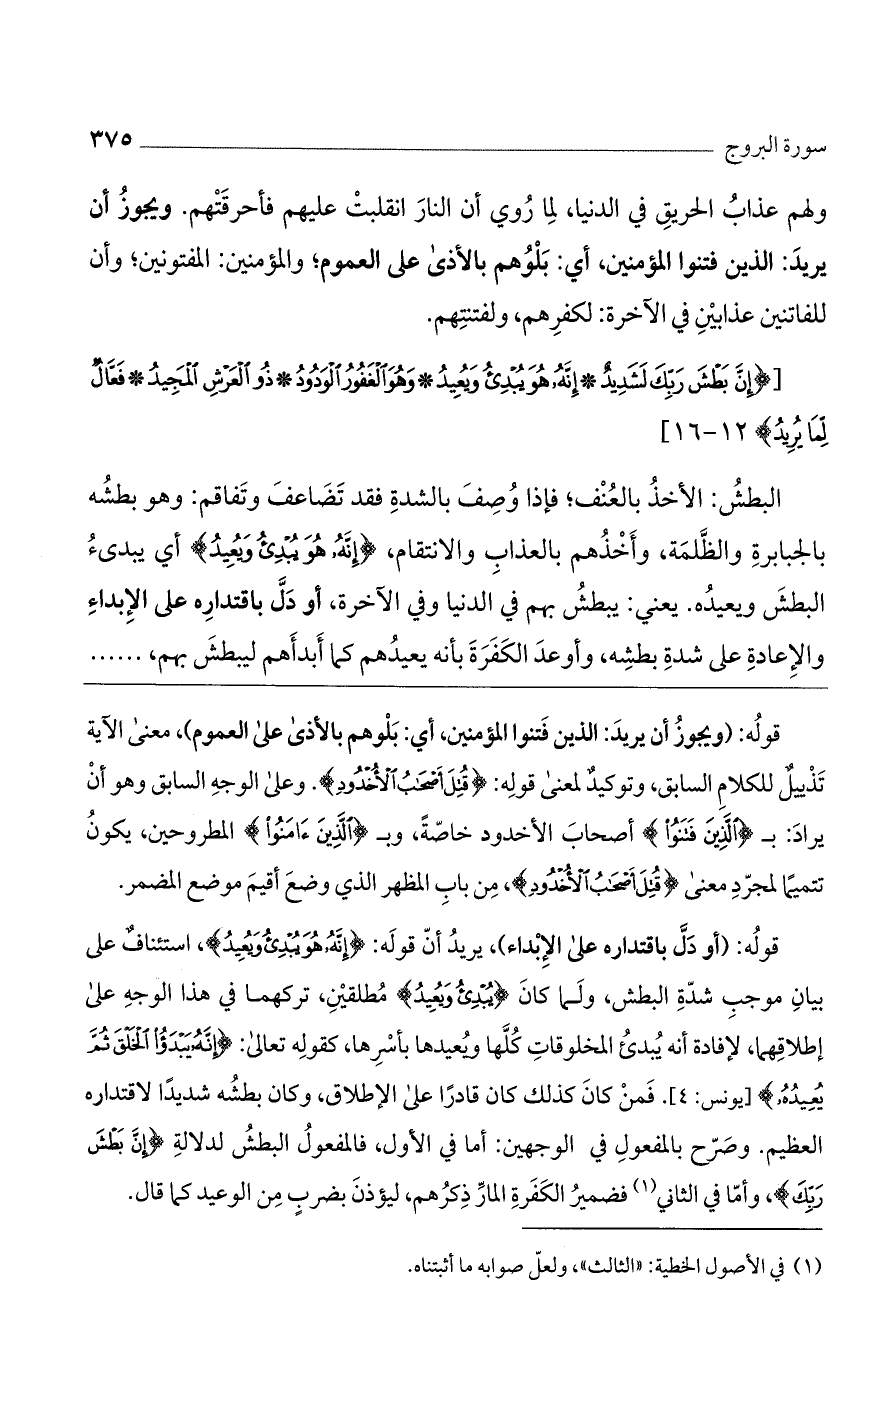 سورة البروج ٣٧٥
ولهم عذابُ الحريقِ في الدنيا، لِما رُوي أن النارَ انقلبتْ عليهم فأحرقَتْهم. ويجوزُ أن
يريدَ: الذين فتنوا المؤمنين، أي: بَلْوُهم بالأذىٰ على العموم؛ والمؤمنين: المفتونين؛ وأن
للفاتنين عذابيْنِ في الآخرة: لكفرِهم، ولفتنتِهم.
[﴿إِنَّ بَطْشَ رَبِّكَ لَشَدِيدٌ * إِنَّهُۥ هُوَ يُبْدِئُ وَيُعِيدُ * وَهُوَ ٱلْغَفُورُ ٱلْوَدُودُ * ذُو ٱلْعَرْشِ ٱلْمَجِيدُ * فَعَّالٌ
لِّمَا يُرِيدُ﴾ ١٢-١٦]
البطشُ: الأخذُ بالعُنْف؛ فإذا وُصِفَ بالشدةِ فقد تَضَاعفَ وتَفاقم: وهو بطشُه
بالجبابرةِ والظَّلمَة، وأَخْذُهم بالعذابِ والانتقام، ﴿إِنَّهُۥ هُوَ يُبْدِئُ وَيُعِيدُ﴾ أي يبدىءُ
البطشَ ويعيدُه. يعني: يبطشُ بهم في الدنيا وفي الآخرة، أو دَلَّ باقتدارِه على الإبداءِ
والإعادةِ على شدةِ بطشِه، وأوعدَ الكَفَرَةَ بأنه يعيدُهم كما أَبدأَهم ليبطشَ بهم، ......
قولُه: (ويجوزُ أن يريدَ: الذين فَتنوا المؤمنين، أي: بَلْوهم بالأذىٰ علىٰ العموم)، معنىٰ الآية
تَذْييلٌ للكلامِ السابق، وتوكيدٌ لمعنىٰ قولِه: ﴿قُتِلَ أَصْحَٰبُ ٱلْأُخْدُودِ﴾. وعلىٰ الوجهِ السابق وهو أنْ
يرادَ: بـ ﴿ٱلَّذِينَ فَتَنُوا۟﴾ أصحابَ الأخدود خاصّةً، وبـ ﴿ٱلَّذِينَ ءَامَنُوا۟﴾ المطروحين، يكونُ
تتميمًا لمجرّدِ معنىٰ ﴿قُتِلَ أَصْحَٰبُ ٱلْأُخْدُودِ﴾، مِن بابِ المظهر الذي وضعَ أقيمَ موضع المضمر.
قولُه: (أو دَلَّ باقتداره علىٰ الإبْداء)، يريدُ أنّ قولَه: ﴿إِنَّهُۥ هُوَ يُبْدِئُ وَيُعِيدُ﴾، استئنافٌ على
بيانِ موجبِ شدّةِ البطش، ولَـما كانَ ﴿يُبْدِئُ وَيُعِيدُ﴾ مُطلقيْنِ، تركهما في هذا الوجهِ علىٰ
إطلاقِهما، لإفادة أنه يُبدئُ المخلوقاتِ كُلَّها ويُعيدها بأسْرِها، كقولِه تعالىٰ: ﴿إِنَّهُۥ يَبْدَؤُا۟ ٱلْخَلْقَ ثُمَّ
يُعِيدُهُۥ﴾ [يونس: ٤]. فَمنْ كانَ كذلك كان قادرًا علىٰ الإطلاق، وكان بطشُه شديدًا لاقتداره
العظيم. وصَرّح بالمفعولِ في الوجهين: أما في الأول، فالمفعولُ البطشُ لدلالةِ ﴿إِنَّ بَطْشَ
رَبِّكَ﴾، وأمّا في الثاني(١) فضميرُ الكَفَرةِ المارِّ ذِكرُهم، ليؤذنَ بضربٍ مِن الوعيد كما قال.
(١) في الأصول الخطية: «الثالث»، ولعلّ صوابه ما أثبتناه.